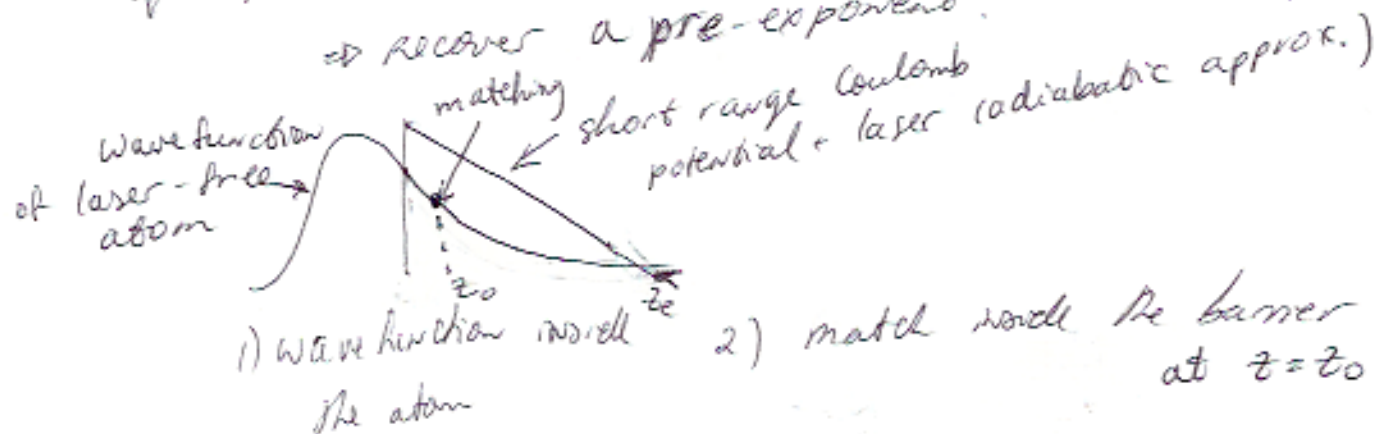 ⇒ Recover a pre-exponent.
matching
short range Coulomb
potential + laser (adiabatic approx.)
wavefunction
of laser-free
atom
z₀
zₑ
1) wavefunction inside
the atom
2) match inside the barrier
at z = z₀